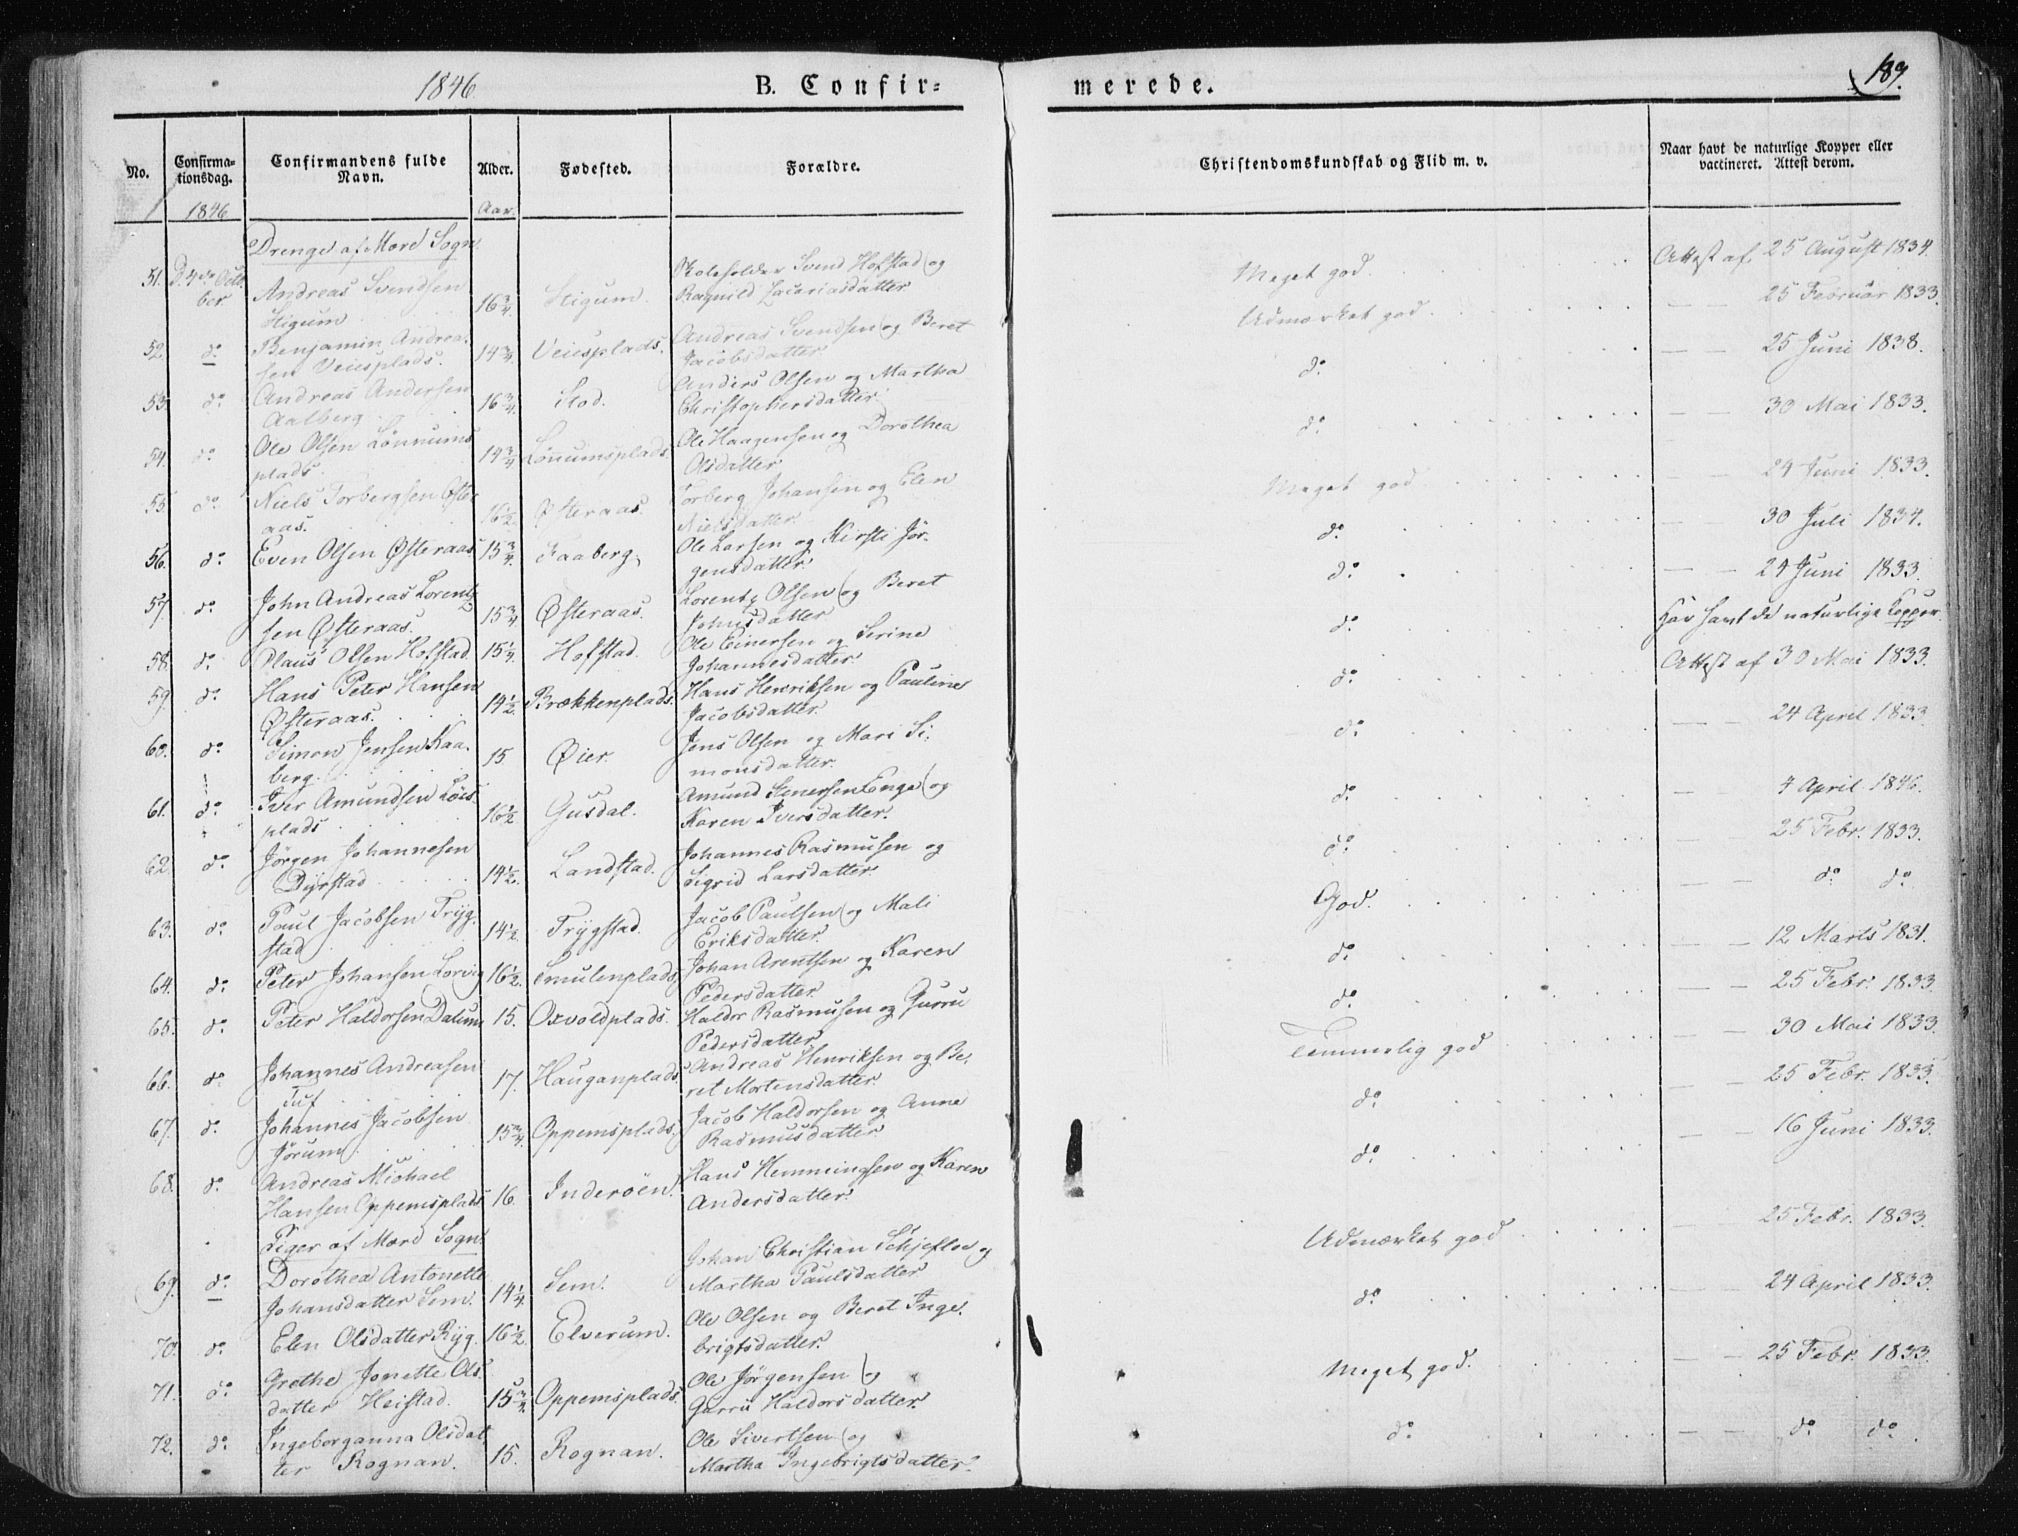 1846 B. Confir= merede. 189.
No. Confirma-tionsdag. Confirmandens fulde Navn. Alder. Fødested. Forældre. Christendomskundskab og Flid m. v. Naar havt de naturlige Kopper eller vaccineret. Attest derom.
1846 Aar.
Drenge af Mære Sogn.
51. D. 4de Octo- Skoleholder Svend Hofstad og Meget god. Attest af 25 August 1834.
ber. Andreas Svendsen 16 3/4. Stigum. Ragnild Zacariasdatter
Stigum
52. do Benjamin Andrea- 14 3/4. Veiesplads. Andreas Svendsen og Beret Udmærket god. — — 25 Februar 1833.
sen Veiesplads. Jacobsdatter
53. do Andreas Andersen 16 3/4. Stod. Anders Olsen og Martha do — — 25 Juni 1838.
Aalberg Christophersdatter
54. do Ole Olsen Lønnums 14 3/4 Lønumsplads. Ole Haagensen og Dorothea do — — 30 Mai 1833.
plads. Olsdatter
55. do Niels Torbergsen Øster 16 1/2. Østeraas. Torberg Johansen og Elen Meget god. — — 24 Juni 1833.
aas. Nielsdatter
56. do Even Olsen Østeraas 15 3/4. Faaberg. Ole Larsen og Kirsti Jør- do — — 30 Juli 1834.
gensdatter
57. do John Andreas Lorentz 15 3/4 Østeraas. Lorentz Olsen og Beret do — — 24 Juni 1833.
sen Østeraas. Johnsdatter
58. do Claus Olsen Hofstad 15 1/4. Hofstad. Ole Einersen og Serine do Har havt de naturlige Kopper
Johannesdatter
59. do Hans Peter Hansen 14 1/2. Brækkenplads. Hans Henriksen og Pauline do Attest af 30 Mai 1833.
Østeraas. Jacobsdatter
60. do Simon Jensen Kaa- 15 Øier. Jens Olsen og Mari Si- do — — 24 April 1833.
berg. monsdatter
61. do Iver Amundsen 16 1/2 Gusdal. Amund Stenersen Enge og do — — 4 April 1846.
plads Karen Iversdatter.
62. do Jørgen Johannesen 14 1/2. Landstad. Johannes Rasmusen og do — — 25 Febr. 1833.
Dyrstad Sigrid Larsdatter
63. do Paul Jacobsen Tryg- 14 1/2. Trygstad. Jacob Paulsen og Mali God. — — do do
stad Eriksdatter
64. do Peter Johansen Lorvig 16 1/2. Smulenplads. Johan Arentsen og Karen do — — 12 Marts 1831.
Pedersdatter
65. do Peter Haldorsen Dalum 15. Oxvoldplads. Haldor Rasmusen og Gurru do — — 25 Febr. 1833.
Pedersdatter
66. do Johannes Andreasen 17. Hauganplads. Andreas Henriksen og Be- Temmelig god — — 30 Mai 1833.
Tuf ret Mortensdatter
67. do Johannes Jacobsen 15 3/4. Oppemsplads. Jacob Haldorsen og Anne do — — 25 Febr. 1833.
Jørum Rasmusdatter
68. do Andreas Michael 16. Inderøen. Hans Hemmingsen og Karen do — — 16 Juni 1833.
Hansen Oppemsplads Andersdatter
Piger af Mære Sogn.
69. do Dorothea Antonette 14 1/4. Sem. Johan Christian Schjeflo og Udmærket god — — 25 Febr. 1833.
Johansdatter Sem. Martha Paulsdatter
70. do Elen Olsdatter Ryg. 16 1/2. Elverum. Ole Olsen og Beret Inge- do — — 24 April 1833.
brigtsdatter
71. do Grethe Jonette Ols- 15 3/4. Oppemsplads. Ole Jørgensen og Meget god. — — 25 Febr. 1833.
datter Heistad. Gurru Haldorsdatter.
72. do Ingeborganna Olsdat- 15. Rognan. Ole Sivertsen og do — — do do.
ter Rognan. Martha Ingebrigtsdatter